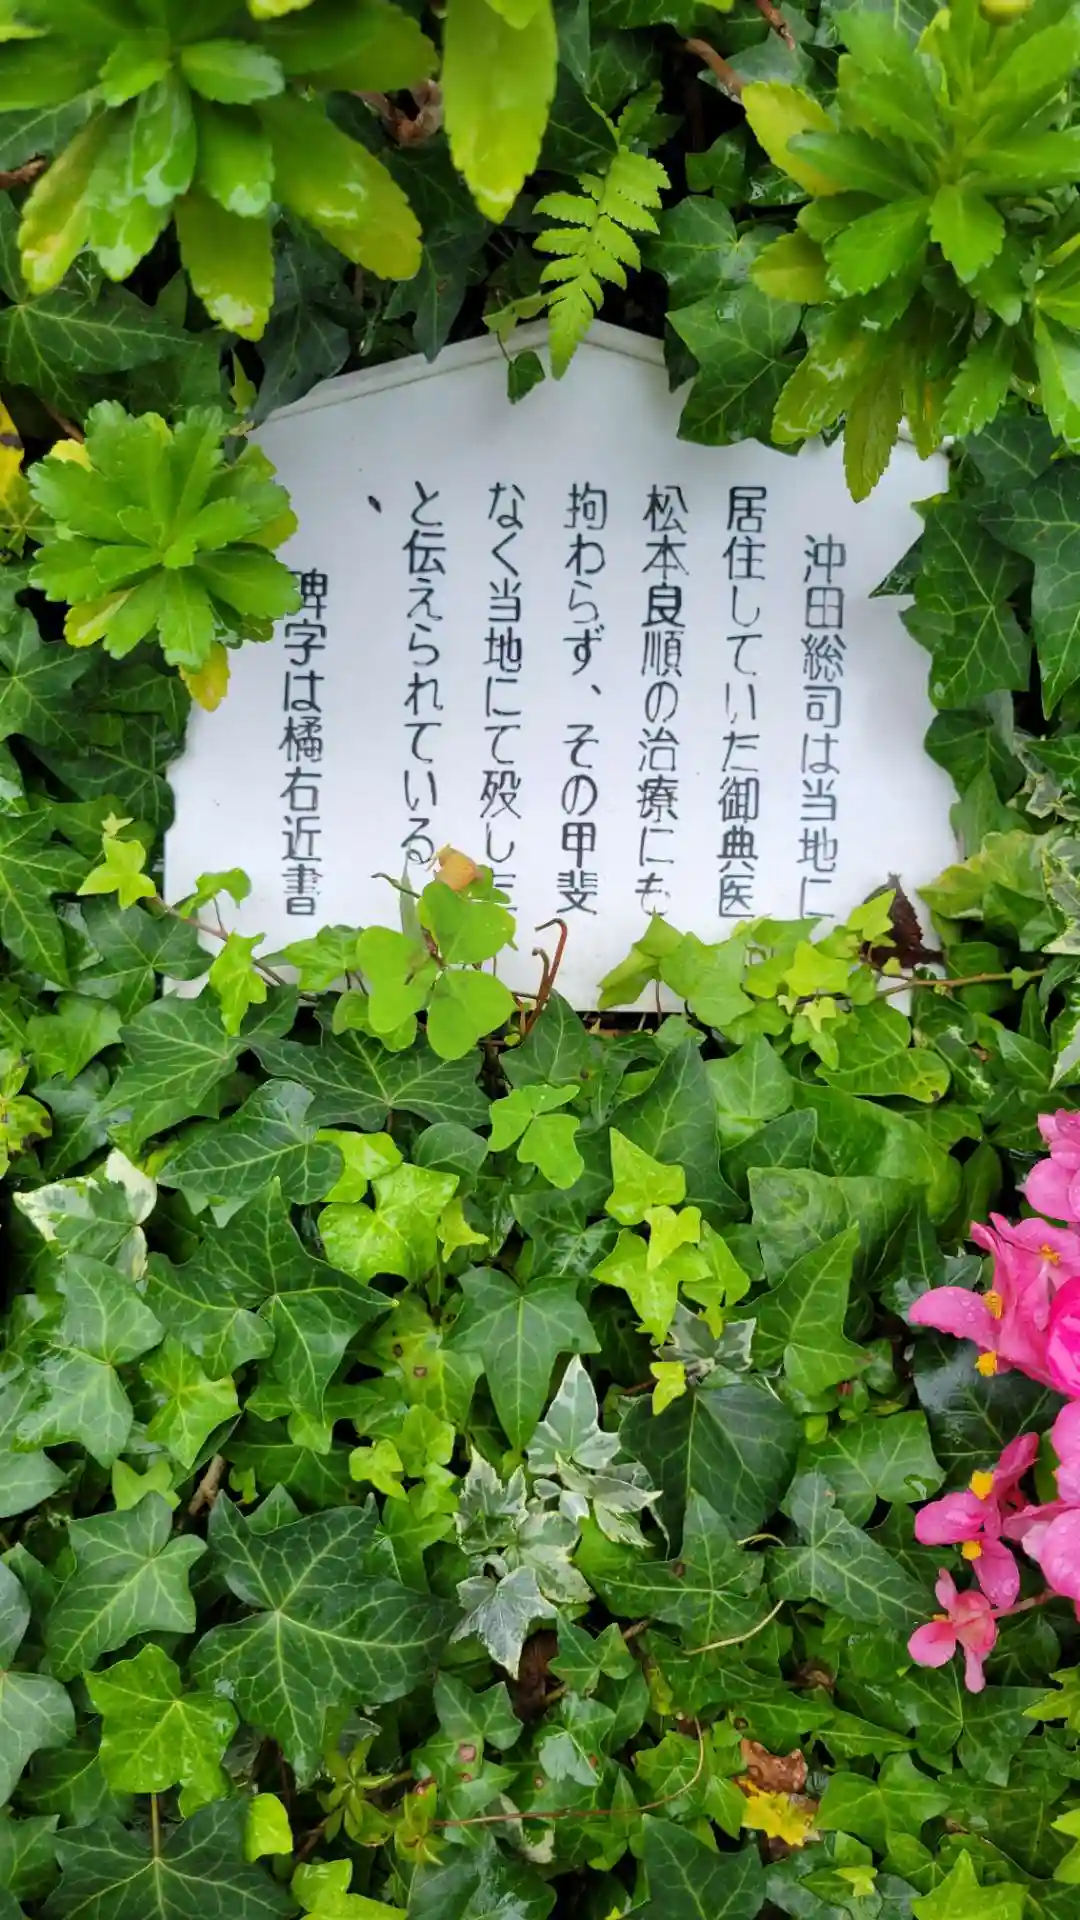 沖田総司は当地に
居住していた御典医
松本良順の治療にも
拘わらず、その甲斐
なく当地にて歿した
と伝えられている
、
碑字は橘右近書